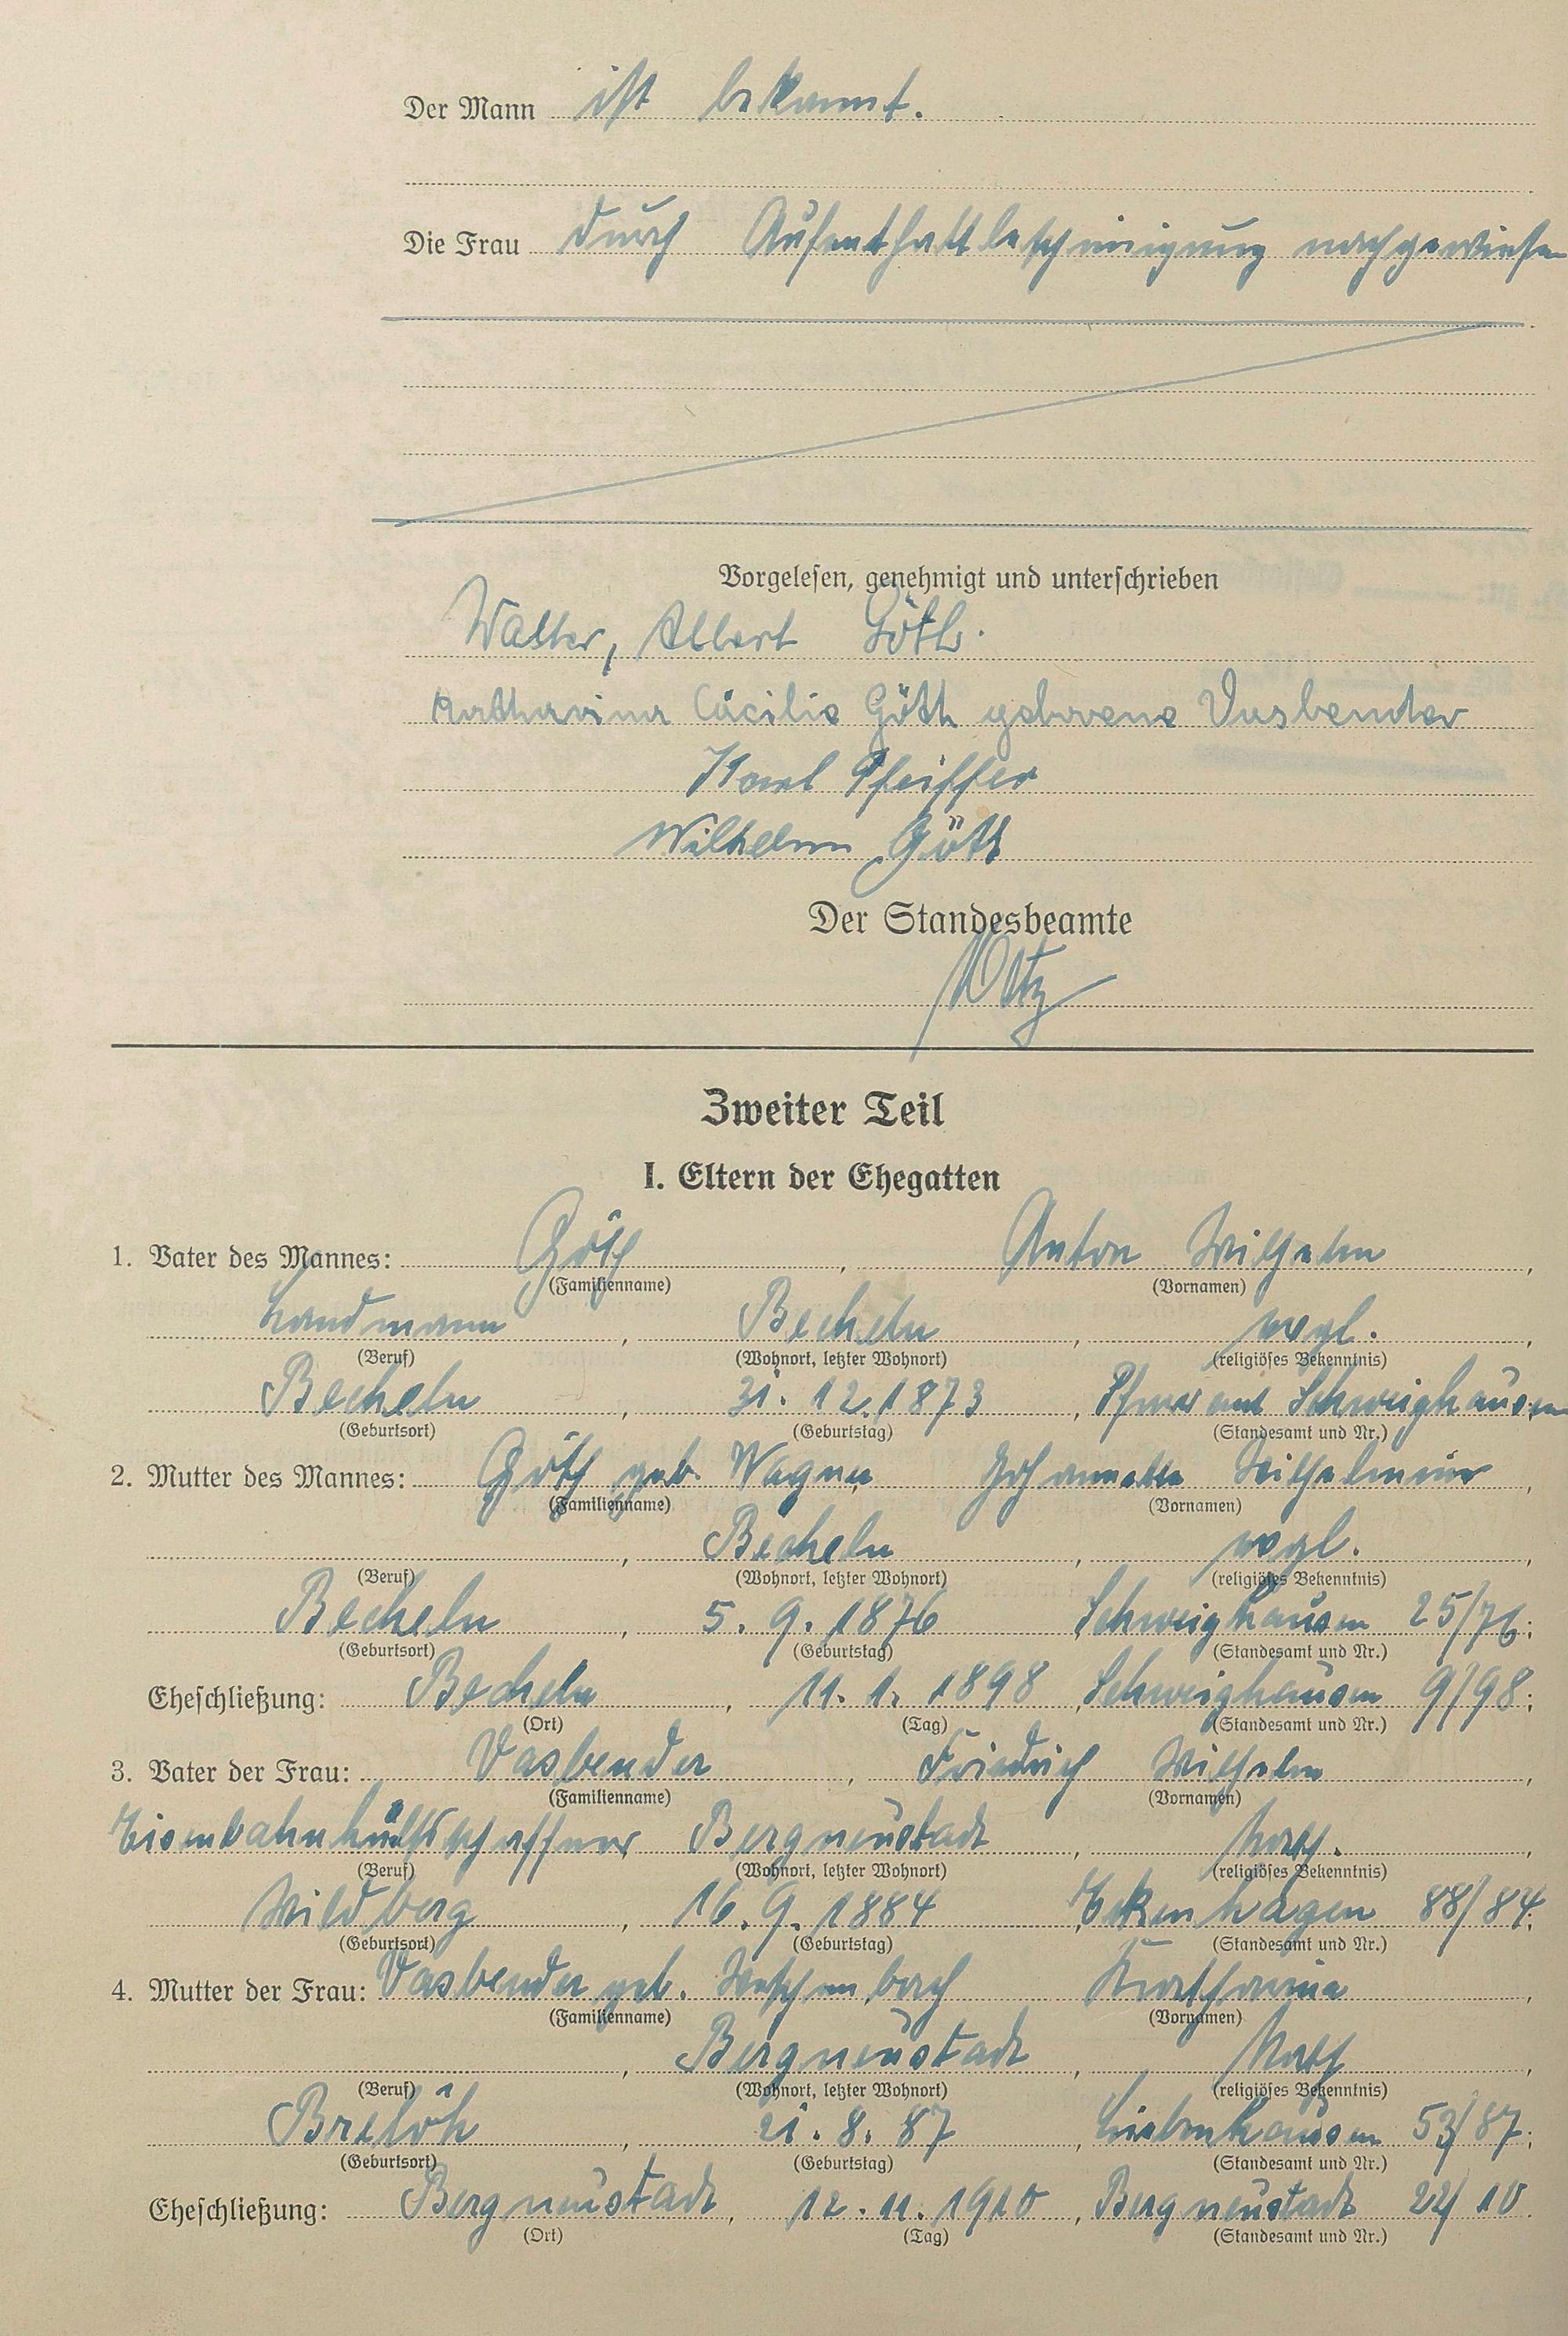 Der Mann ist bekannt.
Die Frau durch Aufenthaltbescheinigung nachgewiesen
Vorgelesen, genehmigt und unterschrieben
Walter, Albert Göth.
Katharina Cäcilie Göth geborene Vasbender
Karl Pfeiffer
Wilhelm Göth
Der Standesbeamte
Zweiter Teil
I. Eltern der Ehegatten
1. Vater des Mannes: Göth, Anton Wilhelm,
(Familienname) (Vornamen)
Landmann, Becheln, evgl.,
(Beruf) (Wohnort, letzter Wohnort) (religiöses Bekenntnis)
Becheln, 31. 12. 1873, Pfarramt Schweighausen
(Geburtsort) (Geburtstag) (Standesamt und Nr.)
2. Mutter des Mannes: Göth geb. Wagner Johannette Wilhelmine,
(Familienname) (Vornamen)
, Becheln, evgl.,
(Beruf) (Wohnort, letzter Wohnort) (religiöses Bekenntnis)
Becheln, 5. 9. 1876, Schweighausen 25/76;
(Geburtsort) (Geburtstag) (Standesamt und Nr.)
Eheschließung: Becheln, 11. 1. 1898, Schweighausen 9/98;
(Ort) (Tag) (Standesamt und Nr.)
3. Vater der Frau: Vasbender, Friedrich Wilhelm,
(Familienname) (Vornamen)
Eisenbahnhülfsschaffner Bergneustadt, kath.,
(Beruf) (Wohnort, letzter Wohnort) (religiöses Bekenntnis)
Wildberg, 16. 9. 1884, Eckenhagen 88/84;
(Geburtsort) (Geburtstag) (Standesamt und Nr.)
4. Mutter der Frau: Vasbender geb. Katharina,
(Familienname) (Vornamen)
, Bergneustadt, kath,
(Beruf) (Wohnort, letzter Wohnort) (religiöses Bekenntnis)
Brelöh, 21. 8. 87, Lieberhausen 53/87;
(Geburtsort) (Geburtstag) (Standesamt und Nr.)
Eheschließung: Bergneustadt, 12. 11. 1910, Bergneustadt 22/10.
(Ort) (Tag) (Standesamt und Nr.)